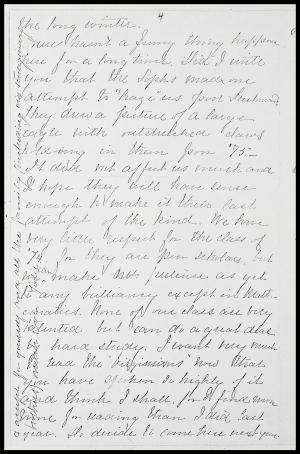 the long winter. 4
There hasn't a funny thing happened
here for a long time. Did I write
you that the Sophs made one
attempt to "haze" us poor Freshmen?
they drew a picture of a large
eagle with outstretched claws
holding in them poor '75-
It did not affect us much and
I hope they will have sense
enough to make it their last
attempt of the kind. We have
very little respect for the class of
'74, for they are poor scholars, but
we can make no pretense as yet
to any brilliancy except in Math-
ematics. None of our class are very
talented but can do a great deal
by hard study. I want very much
to read the now that
you have spoken so highly of it
and think I shall, for I find more
time for reading than I did last
year. Do decide to come here next year
for yourself and all the family including